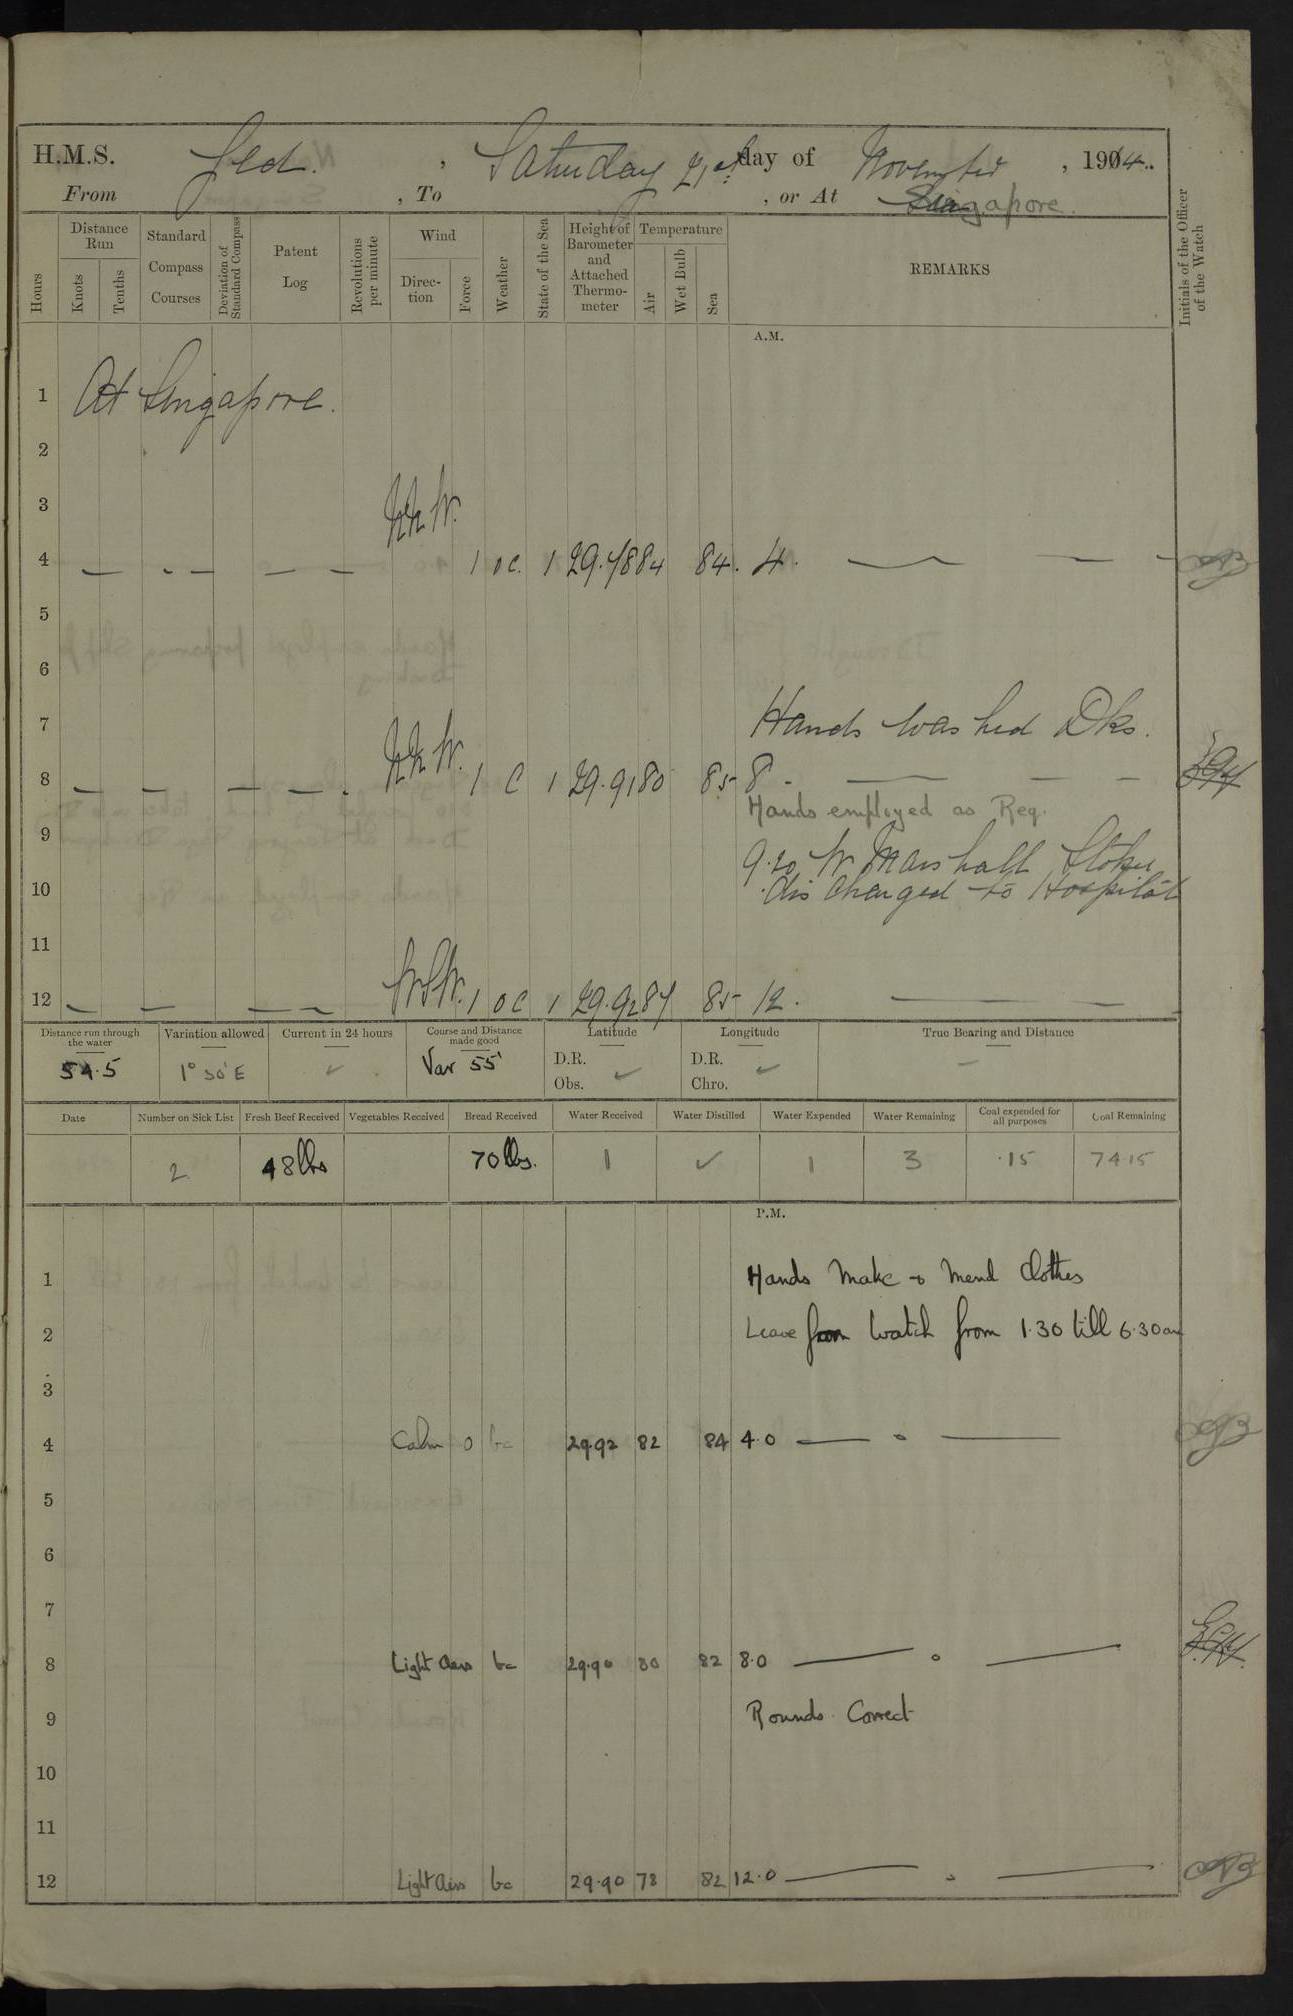 H.M.S. Jed. , Saturday 21st day of November , 1914.
From , To , or At Singapore.
Hours
Distance Run
Knots
Tenths
Standard Compass Courses
Deviation of Standard Compass
Patent Log
Revolutions per minute
Wind
Direction
Force
Weather
State of the Sea
Height of Barometer and Attached Thermometer
Temperature
Air
Wet Bulb
Sea
REMARKS
Initials of the Officer of the Watch
A.M.
1 At Singapore.
2
3
4 NNW. 1 oc. 1 29.78 84 84. 4.
5
6
7 Hands washed Dks.
8 NNW. 1 c 1 29.91 80 85 8.
Hands employed as Req.
9
9.20 W Marshall Stoker
10 discharged to Hospital
11
12 WSW. 1 oc 1 29.92 87 85 12.
Distance run through the water
Variation allowed
Current in 24 hours
Course and Distance made good
Latitude
Longitude
True Bearing and Distance
54.5 1° 30' E ✓ Var 55' D.R. Obs. ✓ D.R. Chro. ✓ —
Date
Number on Sick List
Fresh Beef Received
Vegetables Received
Bread Received
Water Received
Water Distilled
Water Expended
Water Remaining
Coal expended for all purposes
Coal Remaining
2 48 lbs 70 lbs. 1 ✓ 1 3 .15 74.15
P.M.
1 Hands Make & Mend Clothes
2 Leave from Watch from 1.30 till 6.30 am
3
4 Calm 0 bc 29.92 82 84 4.0
5
6
7
8 Light airs bc 29.90 80 82 8.0
9 Rounds Correct
10
11
12 Light airs bc 29.90 78 82 12.0